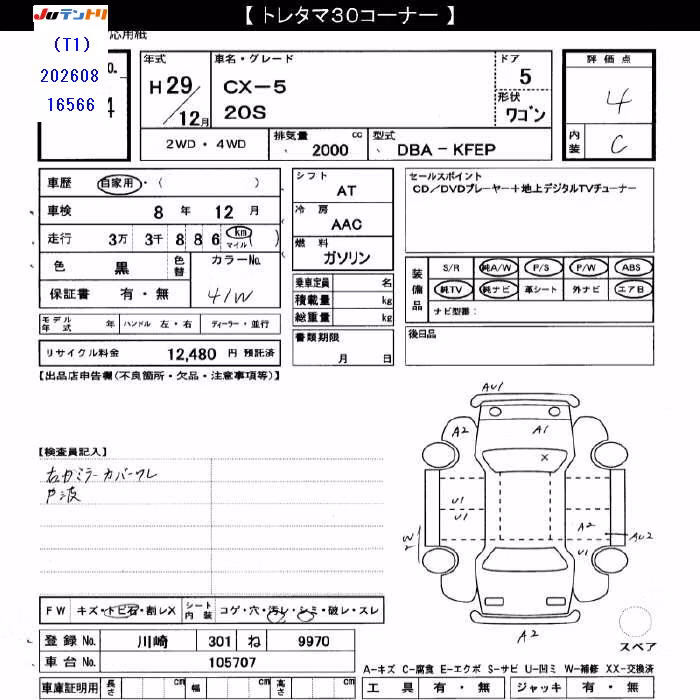 【 トレタマ30コーナー 】
Juテントリ
応用紙
(T1)
202608
16566
o.
年式
H29/12月
車名・グレード
CX-5
20S
ドア
5
形状
ワゴン
評価点
4
内装
C
2WD・4WD
排気量 cc
2000
型式
DBA-KFEP
車歴 自家用・( )
車検 8年 12月
走行 3万 3千 8 8 6 km マイル ( )
色 黒 色替
カラーNo.
41W
保証書 有・無
モデル年式 年 ハンドル 左・右 ディーラー・並行
リサイクル料金 12,480 円 預託済
シフト
AT
冷房
AAC
燃料
ガソリン
乗車定員 名
積載量 kg
総重量 kg
書類期限
月 日
セールスポイント
CD/DVDプレーヤー+地上デジタルTVチューナー
装備品
S/R 純A/W P/S P/W ABS
純TV 純ナビ 革シート 外ナビ エアB
ナビ型番:
後日品
【出品店申告欄(不良箇所・欠品・注意事項等)】
【検査員記入】
右ドミラーカバーワレ
戸波
AU1
A2
A1
X
U1
U1
A2
AU2
U1
W2
A2
スペア
FW キズ・トビ石・割レX
シート内装 コゲ・穴・汚レ・シミ・破レ・スレ
登録No. 川崎 301 ね 9970
車台No. 105707
車庫証明用 長さ cm 幅 cm 高さ cm
A-キズ C-腐食 E-エクボ S-サビ U-凹ミ W-補修 XX-交換済
工具 有・無 ジャッキ 有・無